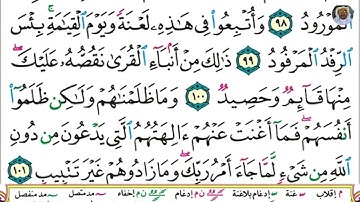 ٱلْمَوْرُودُ ٩٨ وَأُتْبِعُوا۟ فِى هَـٰذِهِۦ لَعْنَةً وَيَوْمَ ٱلْقِيَـٰمَةِ ۚ بِئْسَ
ٱلرِّفْدُ ٱلْمَرْفُودُ ٩٩ ذَٰلِكَ مِنْ أَنۢبَآءِ ٱلْقُرَىٰ نَقُصُّهُۥ عَلَيْكَ ۖ
مِنْهَا قَآئِمٌ وَحَصِيدٌ ١٠٠ وَمَا ظَلَمْنَـٰهُمْ وَلَـٰكِن ظَلَمُوٓا۟
أَنفُسَهُمْ ۖ فَمَآ أَغْنَتْ عَنْهُمْ ءَالِهَتُهُمُ ٱلَّتِى يَدْعُونَ مِن دُونِ
ٱللَّهِ مِن شَىْءٍ لَّمَّا جَآءَ أَمْرُ رَبِّكَ ۖ وَمَا زَادُوهُمْ غَيْرَ تَتْبِيبٍ ١٠١
م إقلاب غنة إدغام بلاغنة ن م إدغام ن م إخفاء مد متصل مد منفصل